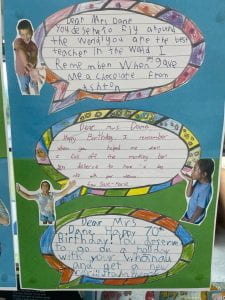 Dear Mrs Dane
You deserve to fly around
the world! you are the best
teacher in the world I
Remember When you gave
Me a chocolate from
Dear mrs Dane
Happy Birthday I remember
when you helped me over
I fell off the monkey bar
you deserve to have a
day with your
Dear Mrs
Dane Happy 70th
Birthday! You deserve
to go on a holiday
with your whanau
and get a new